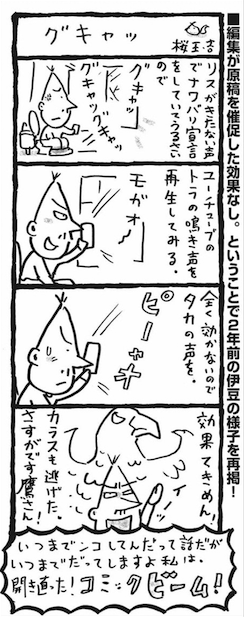 ■編集が原稿を催促した効果なし。ということで2年前の伊豆の様子を再掲!
グキャッ
桜玉吉
リスがきたない声
でナワバリ宣言
をしていてうるさい
ので
グキャッ
グキャッグキャッ
ユーチューブの
トラの鳴き声を
再生してみる。
モガォー
全く効かないので
タカの声を。
ピーャャ
効果てきめん!
カラスも逃げた。
さすがです鷹さん!
いつまでンコしてんだって話だが
いつまでだってしますよ私は。
開き直った!コミックビーム!